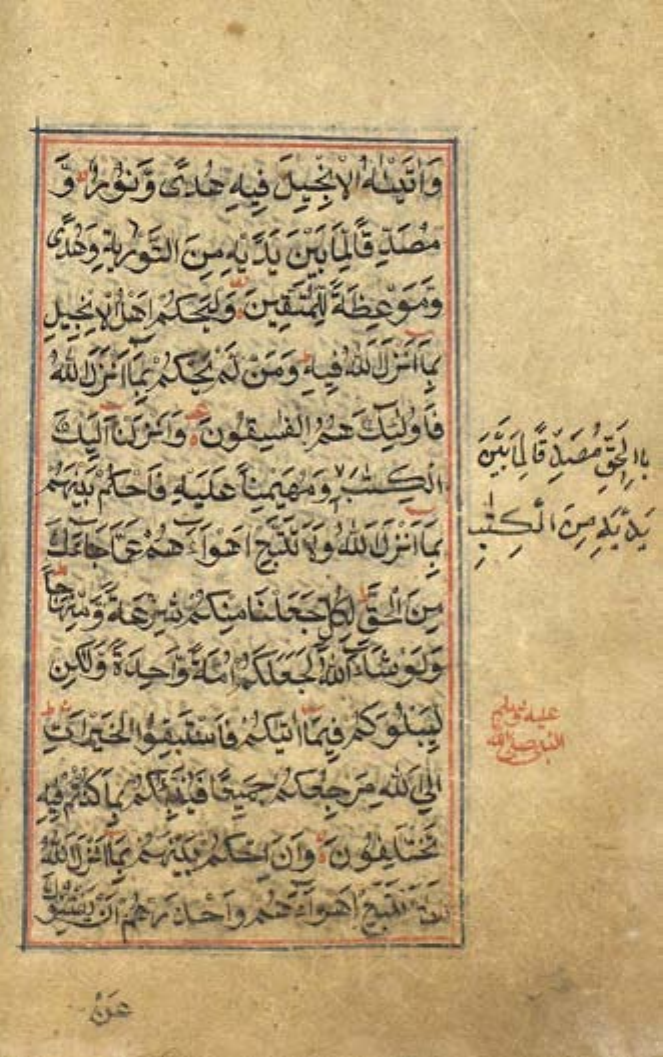 وَاٰتَيْنٰهُ الْاِنْجِيْلَ فِيْهِ هُدًى وَّنُوْرٌ وَّ
مُصَدِّقًا لِّمَا بَيْنَ يَدَيْهِ مِنَ التَّوْرٰىةِ وَهُدًى
وَّمَوْعِظَةً لِّلْمُتَّقِيْنَ وَلْيَحْكُمْ اَهْلُ الْاِنْجِيْلِ
بِمَآ اَنْزَلَ اللّٰهُ فِيْهِ وَمَنْ لَّمْ يَحْكُمْ بِمَآ اَنْزَلَ اللّٰهُ
فَاُولٰٓئِكَ هُمُ الْفٰسِقُوْنَ وَاَنْزَلْنَآ اِلَيْكَ
الْكِتٰبَ وَمُهَيْمِنًا عَلَيْهِ فَاحْكُمْ بَيْنَهُمْ
بِمَآ اَنْزَلَ اللّٰهُ وَلَا تَتَّبِعْ اَهْوَآءَهُمْ عَمَّا جَآءَكَ
مِنَ الْحَقِّ لِكُلٍّ جَعَلْنَا مِنْكُمْ شِرْعَةً وَّمِنْهَاجًا
وَلَوْ شَآءَ اللّٰهُ لَجَعَلَكُمْ اُمَّةً وَّاحِدَةً وَّلٰكِنْ
لِّيَبْلُوَكُمْ فِيْمَآ اٰتٰىكُمْ فَاسْتَبِقُوا الْخَيْرٰتِ
اِلَى اللّٰهِ مَرْجِعُكُمْ جَمِيْعًا فَيُنَبِّئُكُمْ بِمَا كُنْتُمْ فِيْهِ
تَخْتَلِفُوْنَ وَاَنِ احْكُمْ بَيْنَهُمْ بِمَآ اَنْزَلَ اللّٰهُ
تَتَّبِعْ اَهْوَآءَهُمْ وَاحْذَرْهُمْ اَنْ يَّفْتِنُوْكَ
عَنْ
بِالْحَقِّ مُصَدِّقًا لِّمَا بَيْنَ
يَدَيْهِ مِنَ الْكِتٰبِ
عليه وسلم
النبي صلى الله